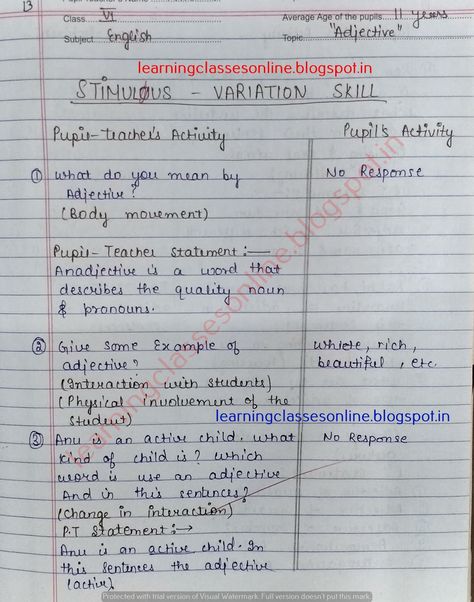 13
Class VI Average Age of the pupils 11 years
Subject English Topic "Adjective"
learningclassesonline.blogspot.in
STIMULOUS - VARIATION SKILL
Pupil-teacher's Activity Pupil's Activity
① What do you mean by No Response
Adjective?
(Body movement)
Pupil-Teacher statement :—
Anadjective is a word that
describes the quality noun
& pronouns.
② Give some Example of white, rich,
adjective? beautiful, etc.
(Interaction with students)
(Physical involvement of the
student)
learningclassesonline.blogspot.in
③ Anu is an active child. what No Response
kind of child is? which
word is use an adjective
And in this sentences?
(Change in interaction)
P.T Statement :→
Anu is an active child. In
this sentences the adjective
(active)
learningclassesonline.blogspot.in
Protected with trial version of Visual Watermark. Full version doesn't put this mark.